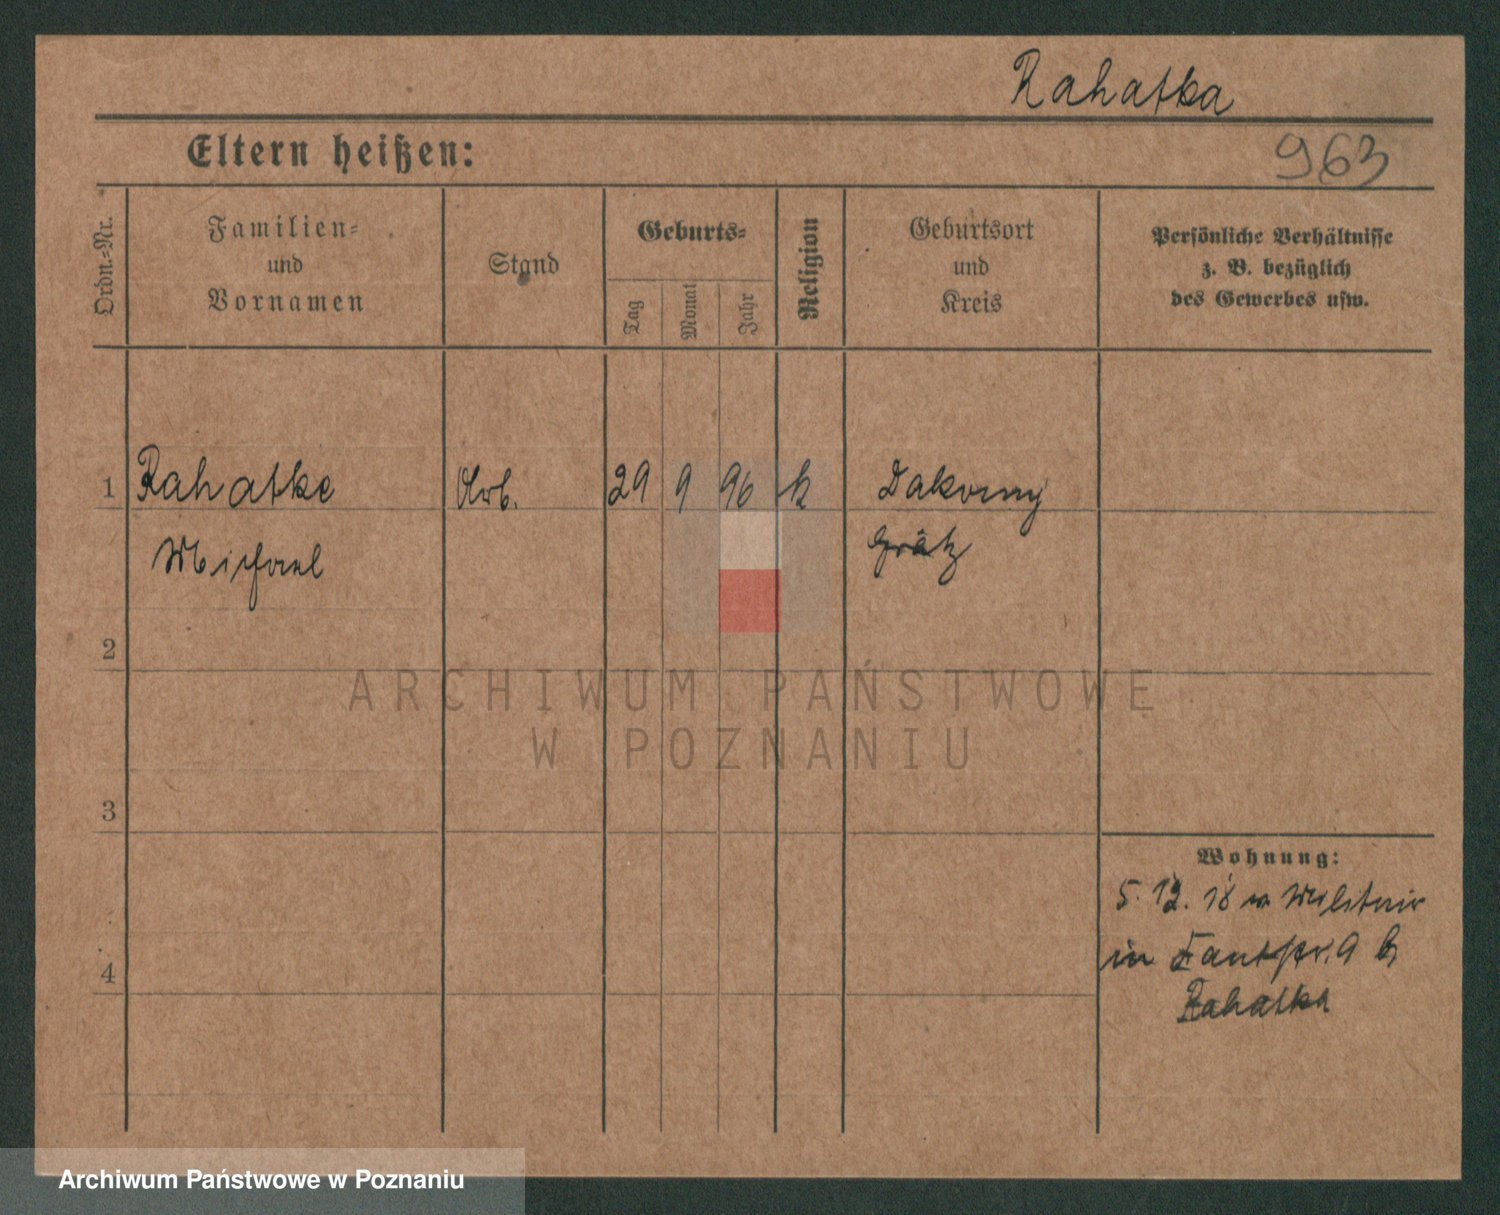 Rahatka
963
Eltern heißen:
Ordn.-Nr.
Familien-
und
Vornamen
Stand
Geburts-
Tag
Monat
Jahr
Religion
Geburtsort
und
Kreis
Persönliche Verhältnisse
z. B. bezüglich
des Gewerbes usw.
1 Rahatke Arb. 29 9 96 k Dakowy
Michael Grätz
2
ARCHIWUM PAŃSTWOWE
W POZNANIU
3
Wohnung:
5. 12. 18 Militair
in 9 b
Rahatka
4
Archiwum Państwowe w Poznaniu